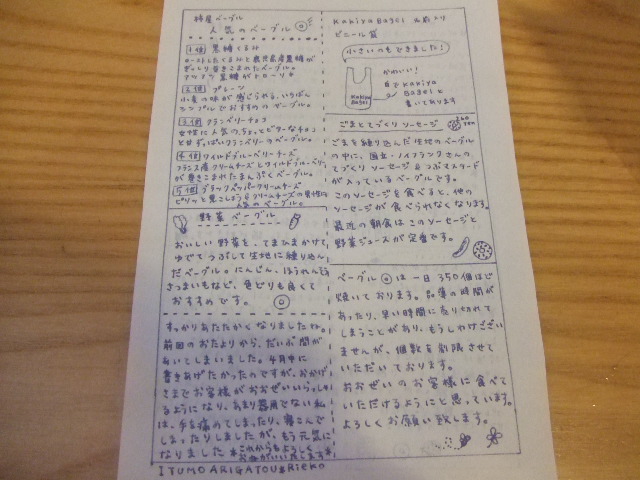 柿屋ベーグル
人気のベーグル
1位 黒糖くるみ
ローストしたくるみと鹿児島産黒糖が
ぎっしり巻きこまれたベーグル。
アツアツ黒糖がトローリ
2位 プレーン
小麦の味が感じられる、いちばん
シンプルでおすすめのベーグル。
3位 クランベリーチョコ
女性に人気のちょっとビターなチョコ
と甘ずっぱいクランベリーのベーグル。
4位 ワイルドブルーベリーチーズ
フランス産クリームチーズとワイルドブルーベリー
が巻きこまれたまんぷくベーグル。
5位 ブラックペッパークリームチーズ
ピリッと黒こしょうとクリームチーズの男性に
人気のベーグル。
野菜ベーグル
おいしい野菜を、てまひまかけて、
ゆでてつぶして生地に練り込ん
だベーグル。にんじん、ほうれん草
さつまいもなど、色どりも良くて
おすすめです。
すっかりあたたかくなりましたね。
前回のおたよりから、だいぶ間が
あいてしまいました。4月中に
書きあげたかったのですが、おかげ
さまでお客様がおおぜいいらっしゃ
るようになり、あまり器用でない私
は、手を痛めてしまったり、寝こんで
しまったりしましたが、もう元気に
なりました
これからもよろしく
おねがいいたします
ITUMO ARIGATOU Rieko
Kakiya Bagel 名前入り
ビニール袋
小さいのもできました!
かわいい!
白でKakiya
Bagelと
書いてあります
Kakiya
Bagel
ごまとてづくりソーセージ
260
yen
ごまを練り込んだ生地のベーグル
の中に、国立・ノイフランクさんの
てづくりソーセージとつぶマスタード
が入っているベーグルです。
このソーセージを食べると、他の
ソーセージが食べられなくなります。
最近の朝食はこのソーセージと
野菜ジュースが定番です。
ベーグルは一日350個ほど
焼いております。品薄の時間が
あったり、早い時間に売り切れて
しまうことがあり、もうしわけござい
ませんが、個数を制限させて
いただいております。
おおぜいのお客様に食べて
いただけるようにと思っています。
よろしくお願い致します。